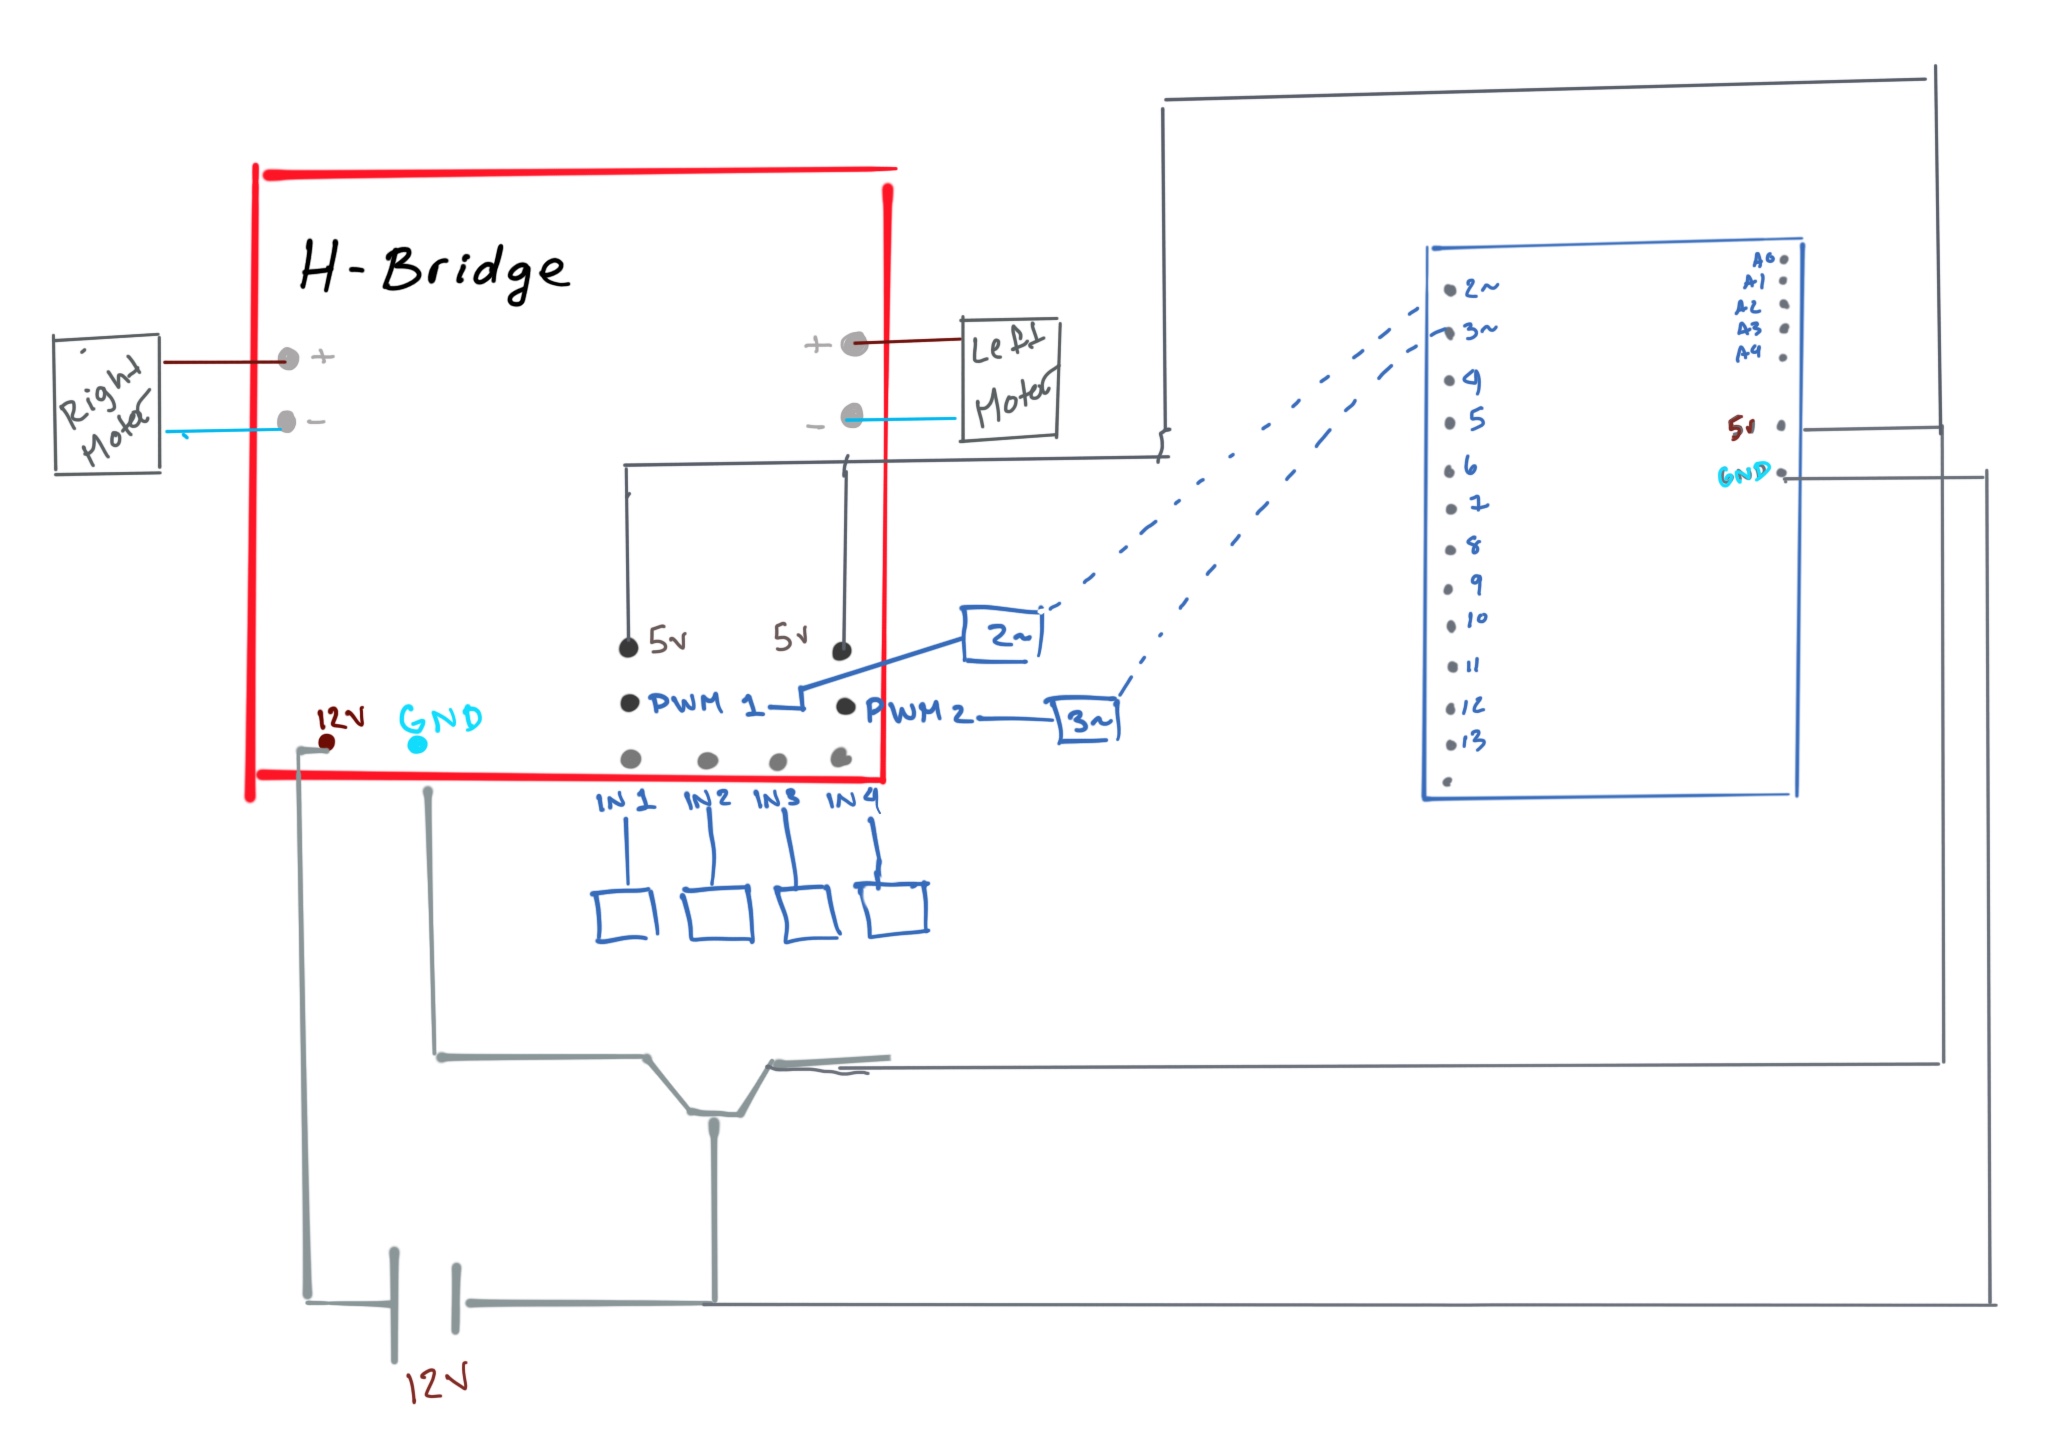 H-Bridge
Right
Motor
+
-
+
-
Left
Motor
5v
5v
PWM 1
PWM 2
2~
3~
12V
GND
IN 1
IN2
IN3
IN4
12V
2~
3~
4
5
6
7
8
9
10
11
12
13
A0
A1
A2
A3
A4
5v
GND